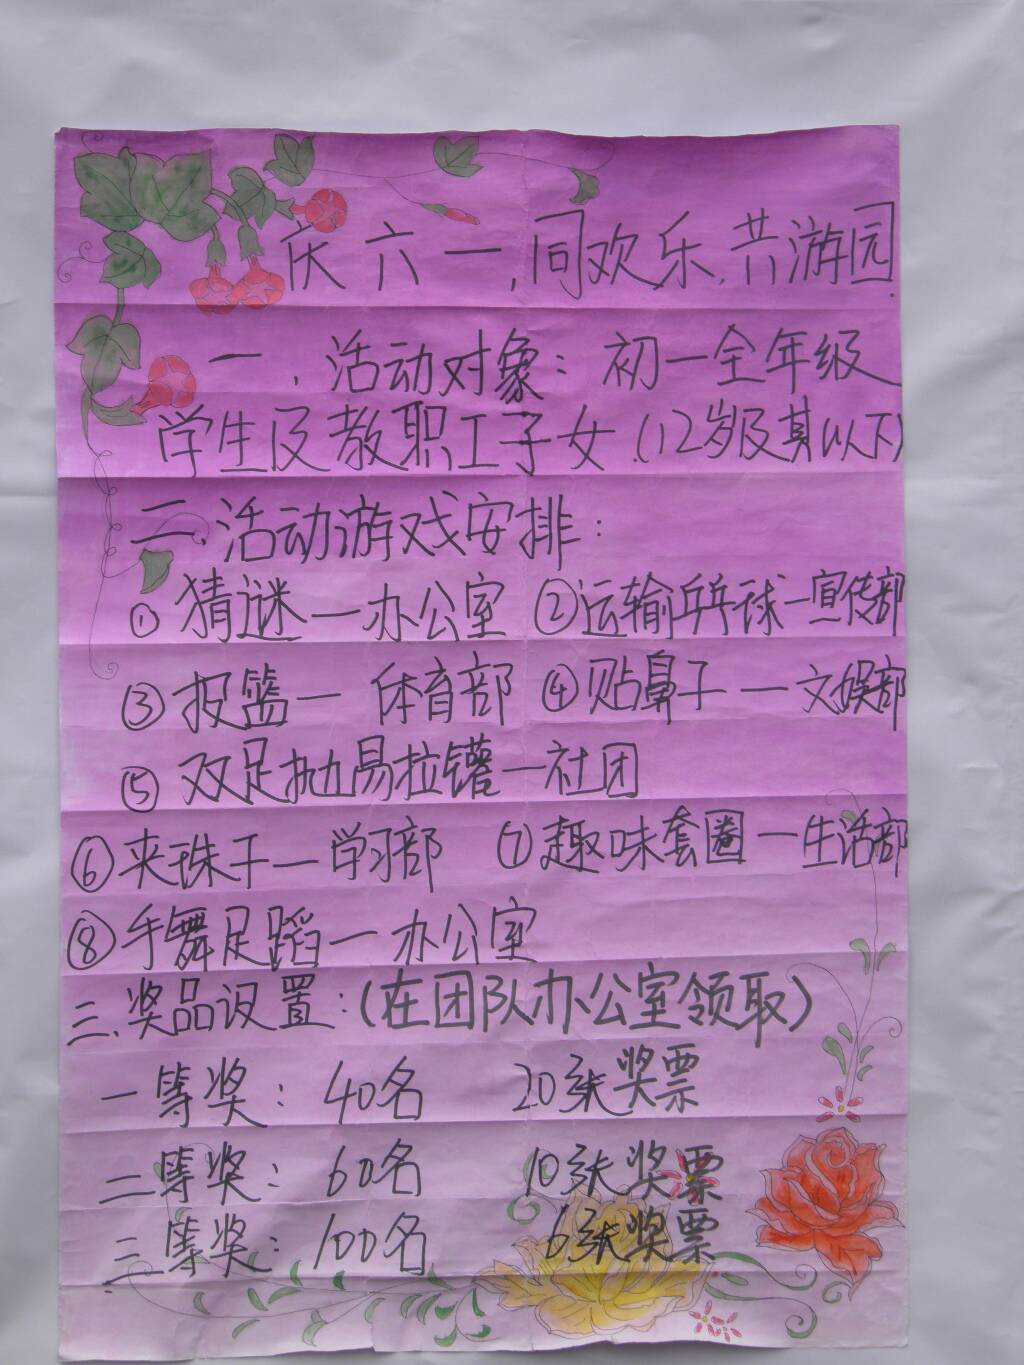 庆六一,同欢乐,共游园.
一、活动对象：初一全年级
学生及教职工子女(12岁及其以下)
二、活动游戏安排：
①猜谜—办公室 ②运输乒乓球—宣传部
③投篮—体育部 ④贴鼻子—文娱部
⑤双足抛易拉罐—社团
⑥夹珠子—学习部 ⑦趣味套圈—生活部
⑧手舞足蹈—办公室
三、奖品设置：(在团队办公室领取)
一等奖：40名 20张奖票
二等奖：60名 10张奖票
三等奖：100名 6张奖票